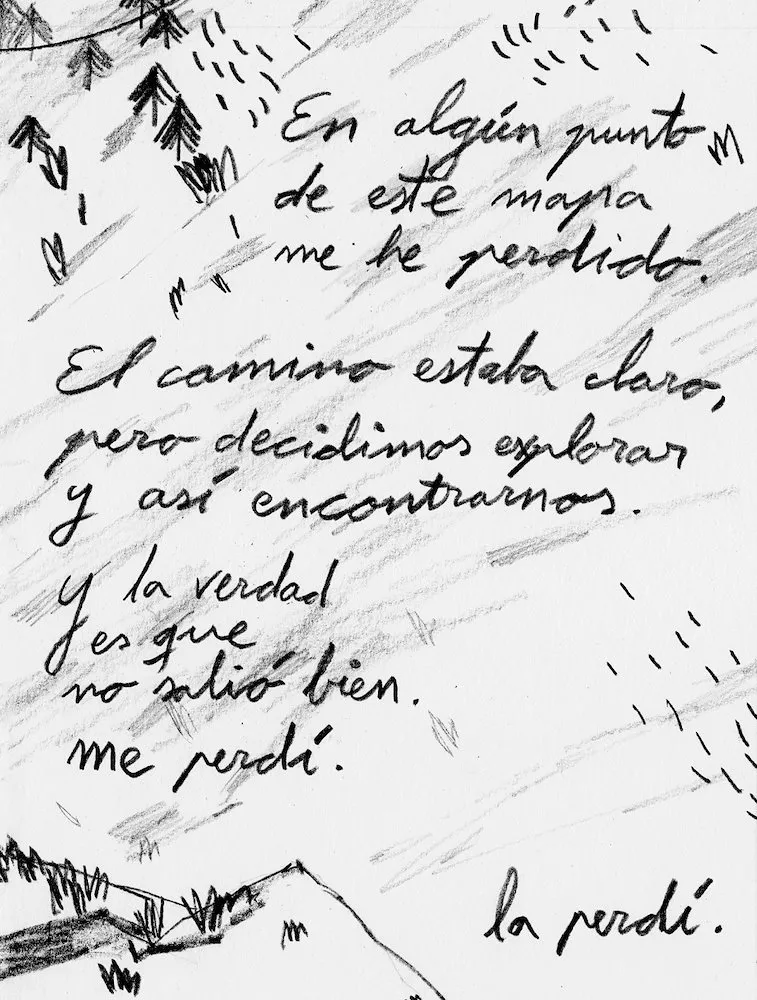 En algún punto
de este mapa
me he perdido.
El camino estaba claro,
pero decidimos explorar
y así encontrarnos.
y la verdad
es que
no salió bien.
me perdí.
la perdí.